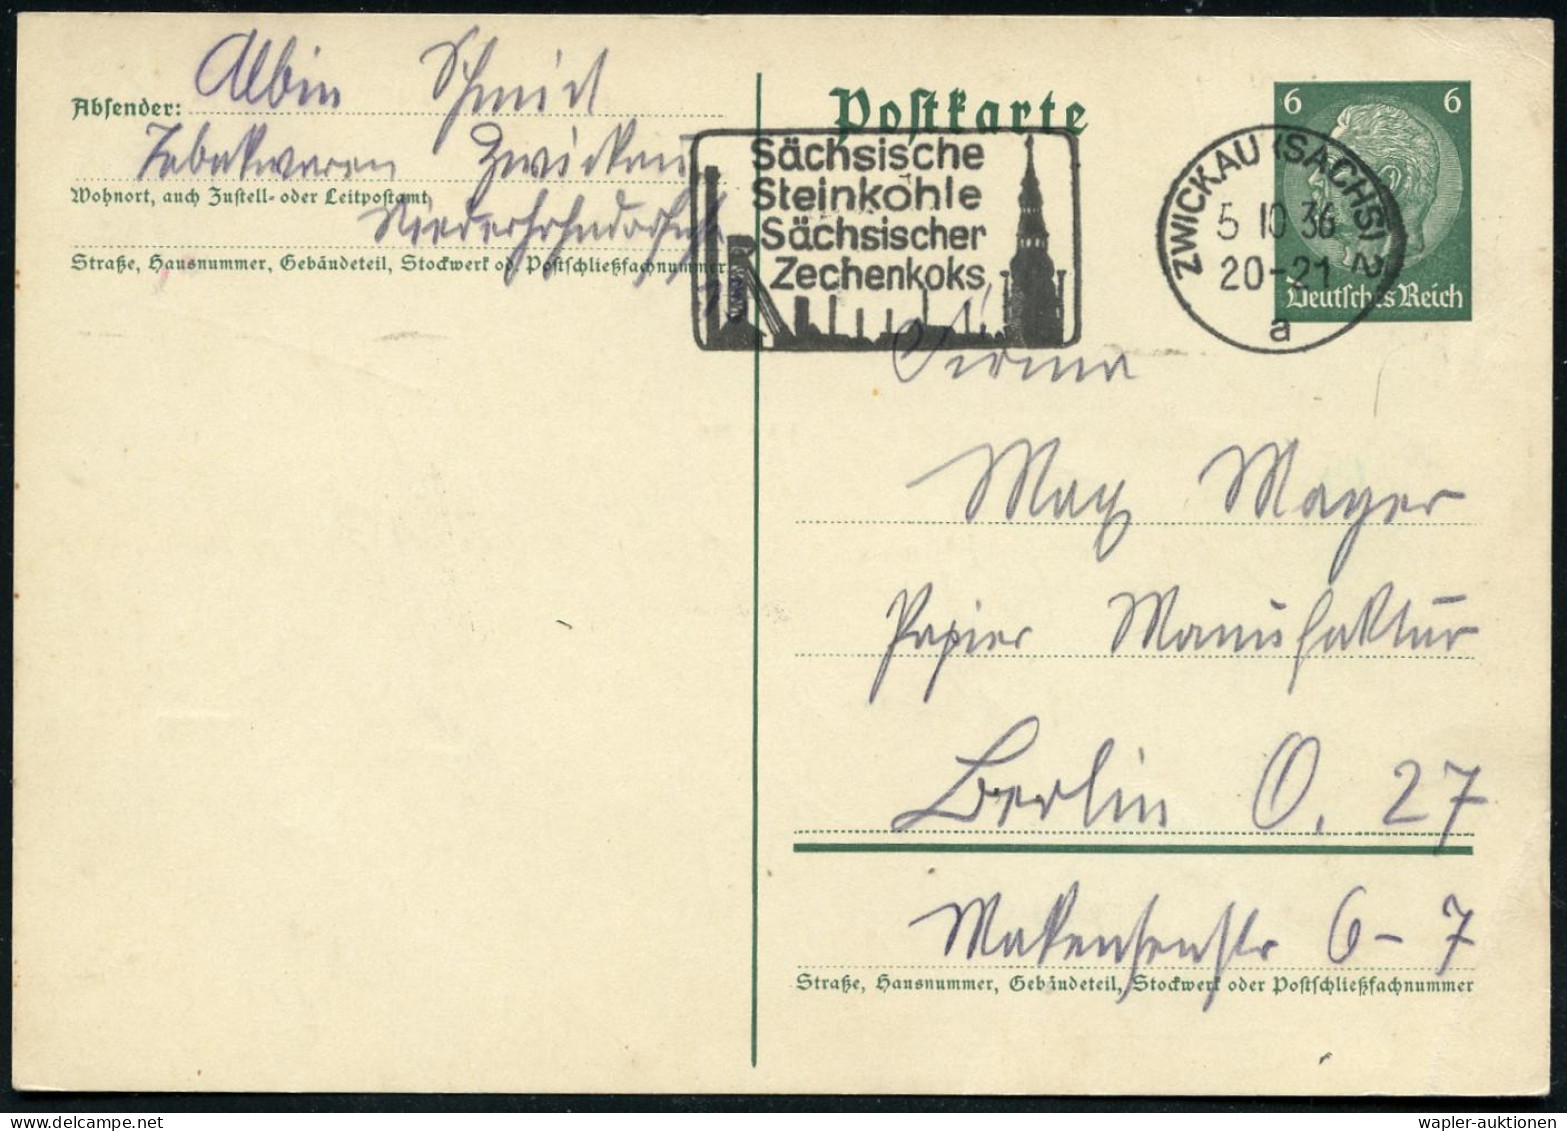 Absender: Albin Schmidt
Tabakwaren Zwickau
Wohnort, auch Zustell- oder Leitpostamt
Niederhohndorferstr
Straße, Hausnummer, Gebäudeteil, Stockwerk od. Postschließfachnummer
Postkarte
Sächsische
Steinkohle
Sächsischer
Zechenkoks
ZWICKAU (SACHS) 2
5 10 36
20-21
a
6 6
Deutsches Reich
Firma
Max Mayer
Papier Manufaktur
Berlin O. 27
Makensenstr 6-7
Straße, Hausnummer, Gebäudeteil, Stockwerk oder Postschließfachnummer
wapler-auktionen